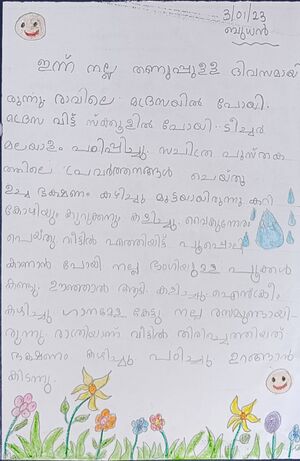 3/01/23
ബുധൻ
ഇന്ന് നല്ല തണുപ്പുള്ള ദിവസമായി
രുന്നു രാവിലെ മദ്രസയിൽ പോയി.
മദ്രസ വിട്ട് സ്കൂളിൽ പോയി. ടീച്ചർ
മലയാളം പഠിപ്പിച്ചു. സചിത്ര പുസ്തക
ത്തിലെ പ്രവർത്തനങ്ങൾ ചെയ്തു
ഉച്ച ഭക്ഷണം കഴിച്ചു മുട്ടയായിരുന്നു കറി
കോഴിയും കുറുക്കനും കളിച്ചു. വൈകുന്നേരം
പെയ്തു വീട്ടിൽ എത്തിയിട്ട് പൂപ്പൊലി
കാണാൻ പോയി നല്ല ഭംഗിയുള്ള പൂക്കൾ
കണ്ടു. ഊഞ്ഞാൽ ആടി. കളിച്ചു. ഐസ്ക്രീം
കഴിച്ചു ഗാനമേള കേട്ടു നല്ല രസമുണ്ടായി-
രുന്നു. രാത്രിയാണ് വീട്ടിൽ തിരിച്ചെത്തിയത്
ഭക്ഷണം കഴിച്ചു പഠിച്ചു ഉറങ്ങാൻ
കിടന്നു.